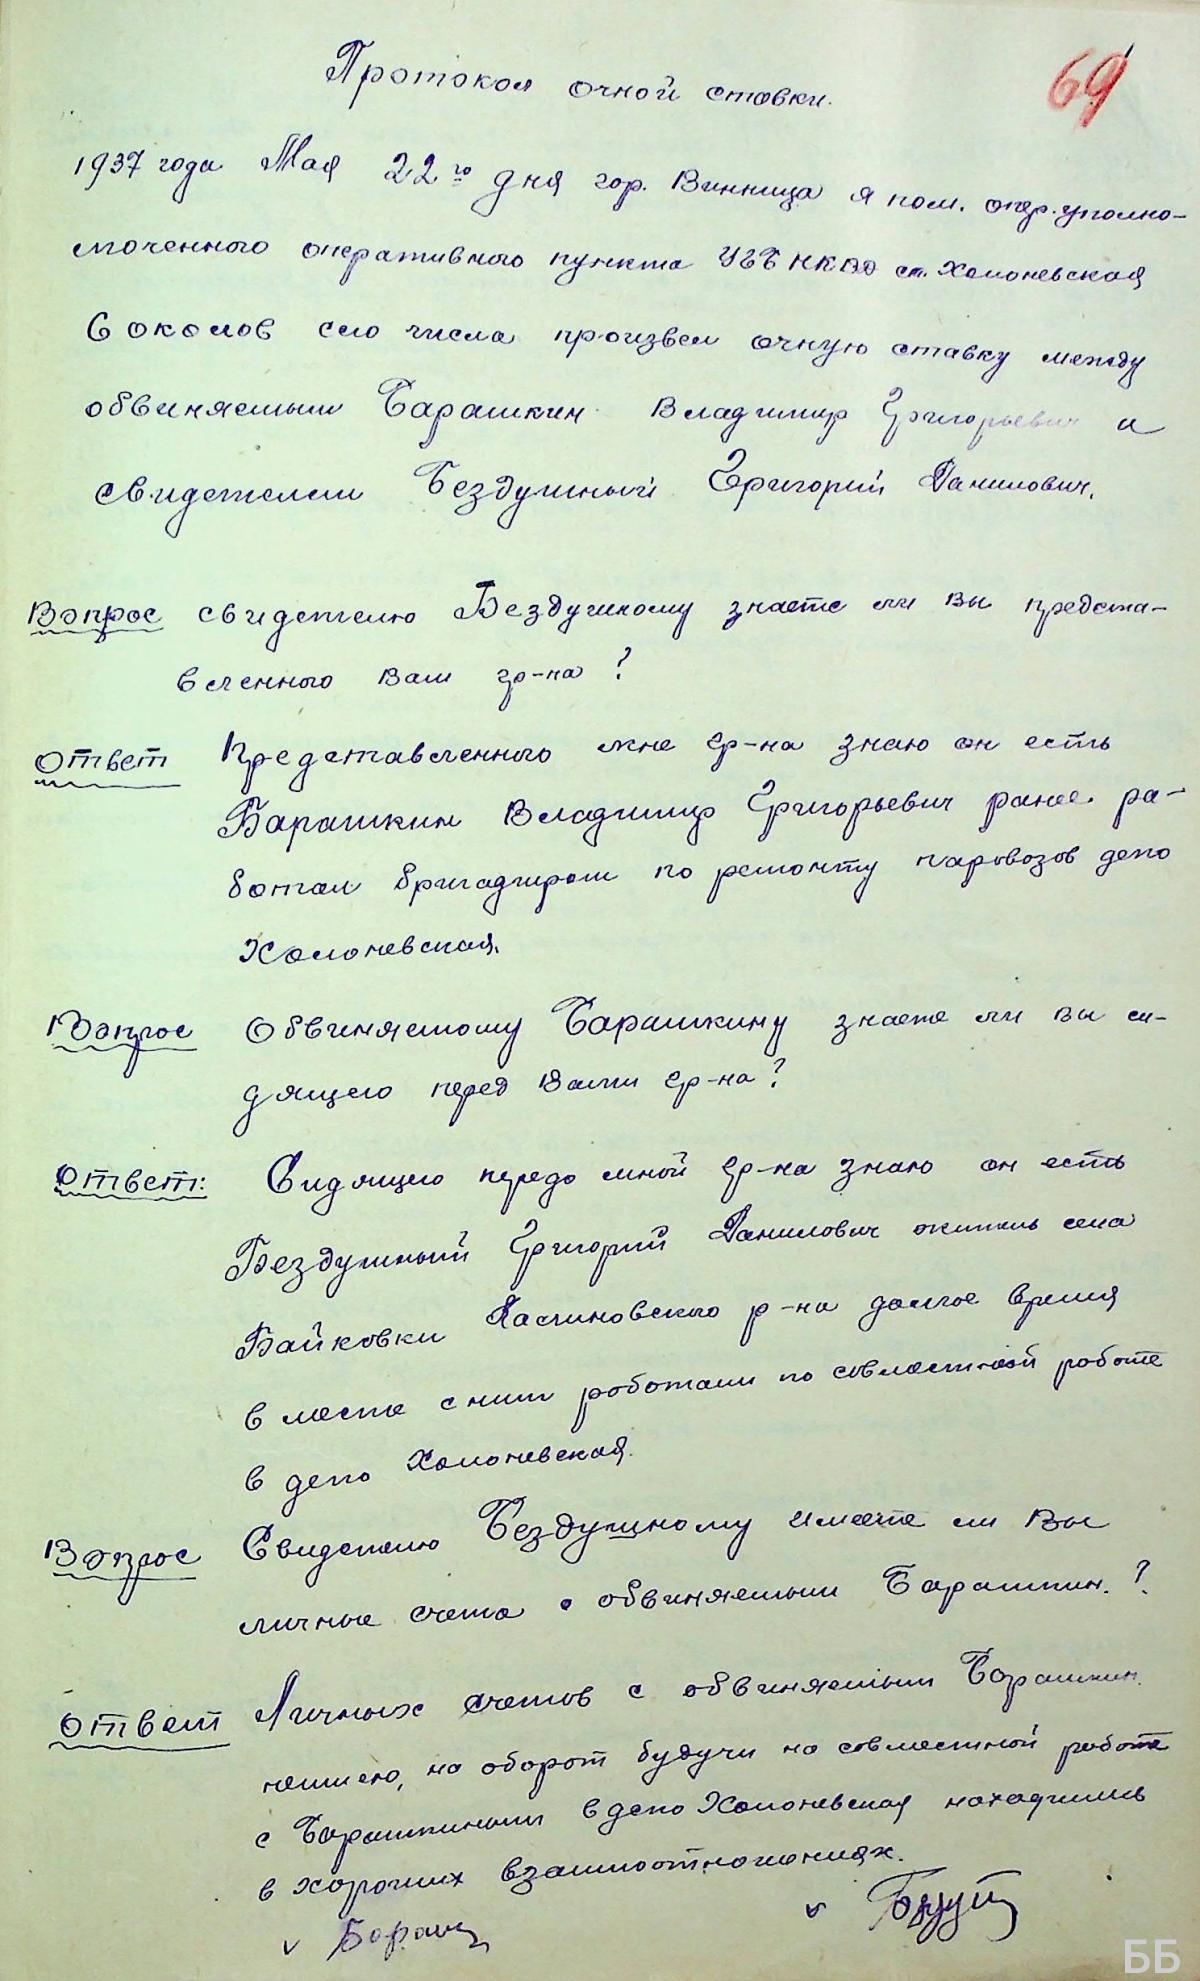 69
Протокол очной ставки.
1937 года Мая 22го дня гор. Винница я пом. опер. уполно-
моченного оперативного пункта УГБ НКВД ст. Холоневская
Соколов сего числа произвел очную ставку между
обвиняемым Барашкин Владимир Григорьевич и
свидетелем Бездушный Григорий Данилович.
Вопрос свидетелю Бездушному знаете ли Вы предста-
вленного Вам гр-на?
Ответ Представленного мне гр-на знаю он есть
Барашкин Владимир Григорьевич ранее ра-
ботал бригадиром по ремонту паровозов депо
Холоневская.
Вопрос Обвиняемому Барашкину знаете ли Вы си-
дящего перед Вами гр-на?
Ответ: Сидящего передо мной гр-на знаю он есть
Бездушный Григорий Данилович житель села
Байковки Калиновского р-на долгое время
вместе с ним роботали по совместной роботе
в депо Холоневская.
Вопрос Свидетелю Бездушному имеете ли Вы
личные счета с обвиняемым Барашкин.?
Ответ Личных счетов с обвиняемым Барашкин.
неимею, на оборот будучи на совместной работе
с Барашкиным в депо Холоневская находились
в хороших взаимоотношениях.
ББ